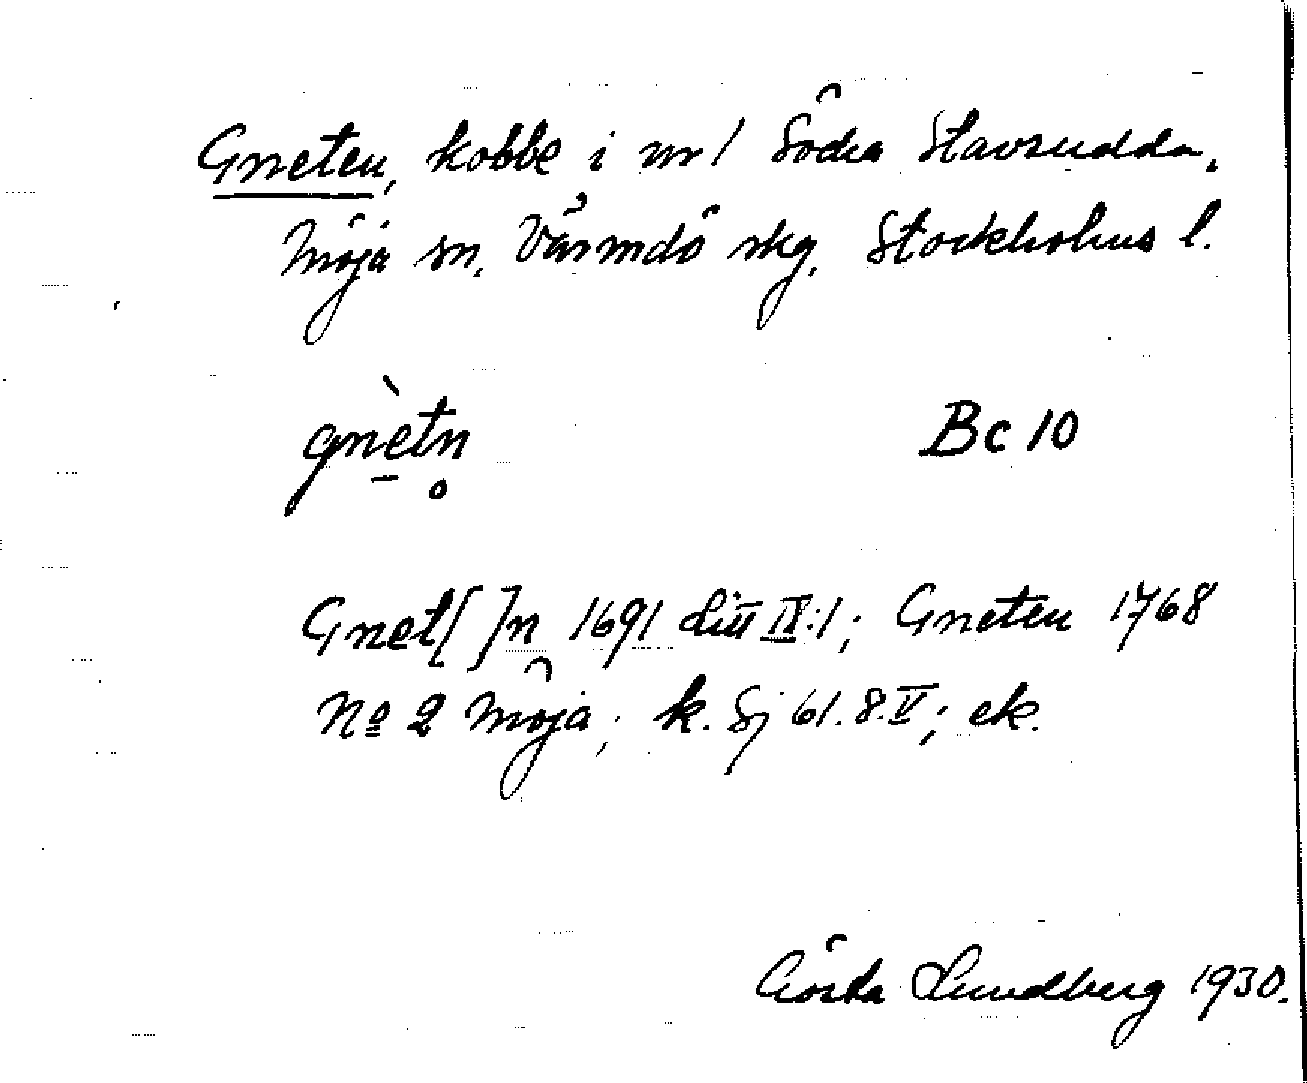 Gneten, kobbe i nr 1 Södra Stavsudda,
Möja sn, Värmdö skg, Stockholms l.
gnètn̥ Bc 10
Gnet[ ]n 1691 Litt IX:1; Gneten 1768
No 2 Möja; k. Sj 61.8.V; ek.
Gösta Lundberg 1930.